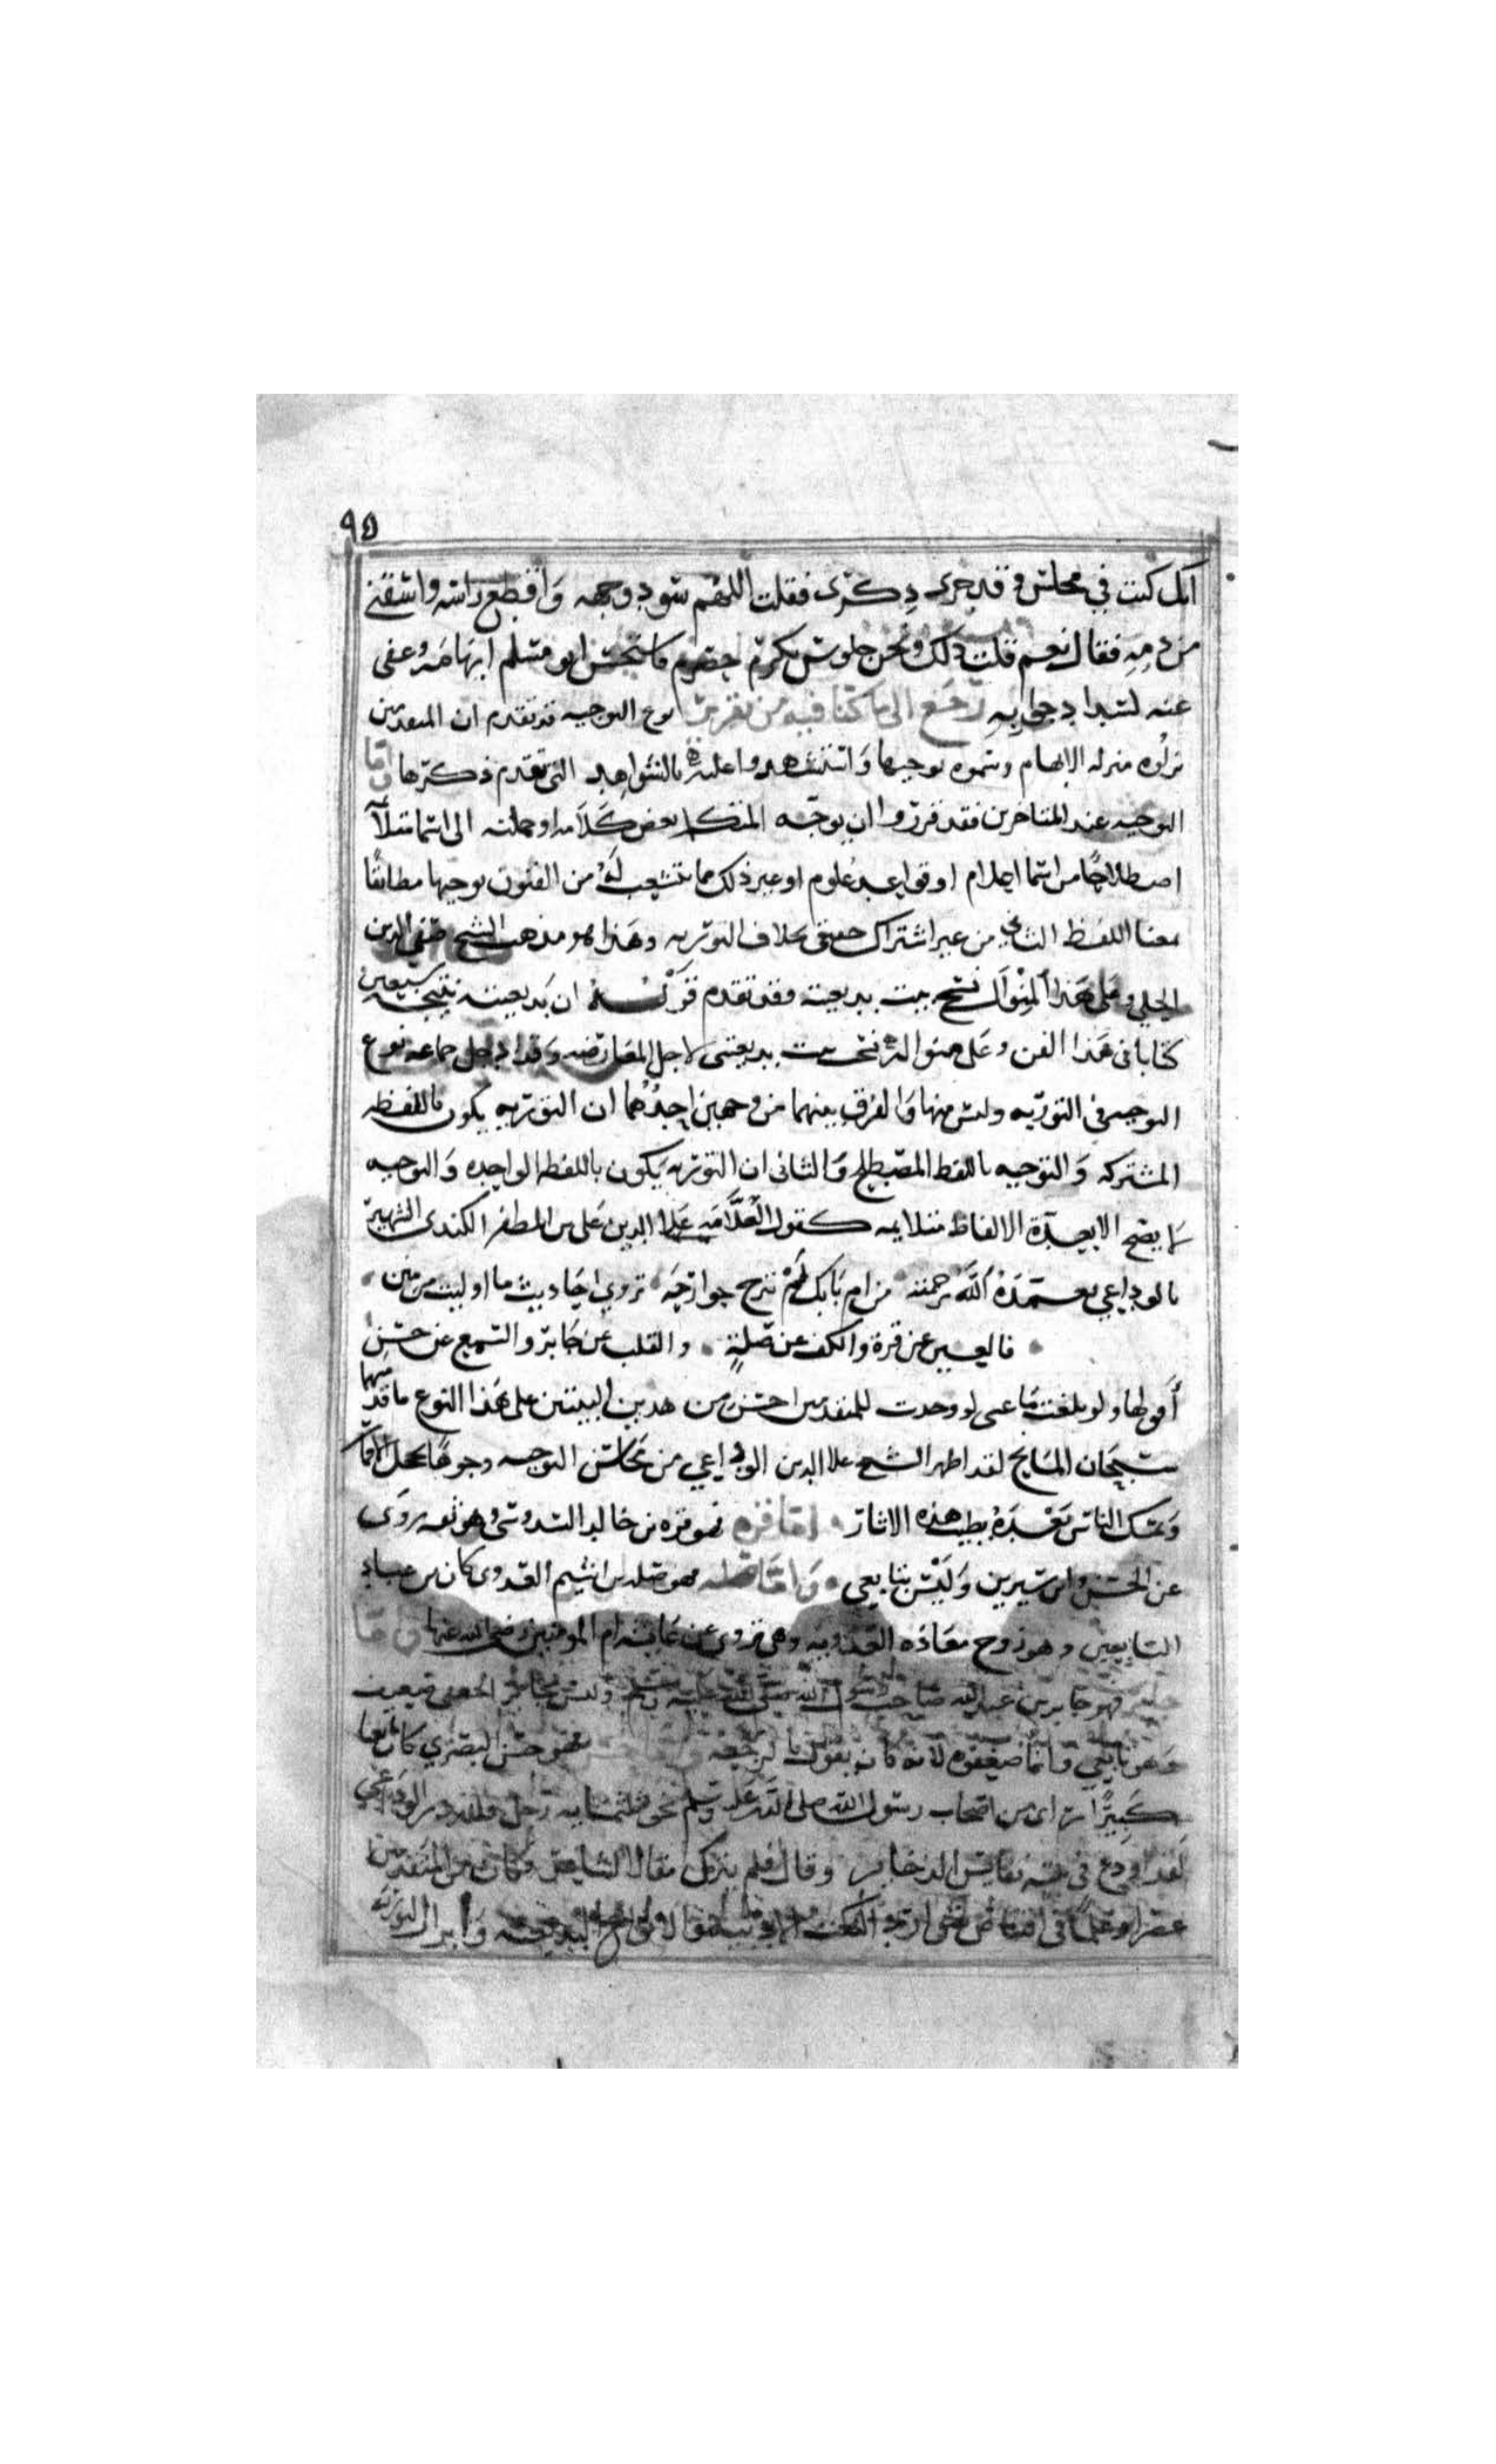 ٩٥
انك كنت في مجلس وقد جرى ذكرى فقلت اللهم سود وجهه واقطع راسه واسقني
من دمه فقال نعم قلت ذلك ونحن جلوس بكرم حصرم فاستحسن ابو مسلم ابهامه وعفى
عنه لسداد جوابه رجع الى ما كنا فيه من تقرير نوع التوجيه قد تقدم ان المتقدمين
نزلوه منزلة الابهام وسموه توجيها واستشهدوا عليه بالشواهد التي تقدم ذكرها واما
التوجيه عند المتاخرين فقد قرروا ان يوجه المتكلم بعض كلامه او جملته الى اسما متلاما
اصطلاحا من اسما اعلام او قواعد علوم او غير ذلك مما يتشعب له من الفنون توجيها مطابقا
لمعنا اللفظ الثاني من غير اشتراك حقيقي بخلاف التورية وهذا هو مذهب الشيخ صفي الدين
الحلي وعلى هذا المنوال نسج بيت بديعيته وقد تقدم قوله ان بديعيته نتيجة سبعين
كتابا في هذا الفن وعلى منواله نسجت بيت بديعيتي لاجل المعارضه وقد ادخل جماعه نوع
التوجيه في التوريه وليس منها والفرق بينهما من وجهين احدهما ان التوريه تكون باللفظه
المشتركه والتوجيه باللفظ المصطلح والثاني ان التوريه تكون باللفظه الواحده والتوجيه
لا يصح الا بعدة الالفاظ متلايمه كقول العلامه علا الدين علي بن المظفر الكندي الشهير
بالوداعي تغمده الله برحمته من ام بابك لم تبرح جوارحه تروي احاديث ما اوليت من منن
فالعين عن قرة والكف عن صلة والقلب عن جابر والسمع عن حسن
أقولها ولو بلغت ما عسى لو وجدت للمتقدمين احسن من هذين البيتين على هذا النوع ما قدمتهما
سبحان المانح لقد اظهر الشيخ علا الدين الوداعي من محاسن التوجيه وجوها
وتمسك الناس بعده بطيب هذه الاثار اما قرة فهو قره بن خالد السدوسي وهو ثقه روى
عن الحسن وابن سيرين وليس بتابعي واما صله فهو صله بن اشيم العدوى كان من عباد
التابعين وهو زوج معاذه العدويه وهي تروي عن عايشه ام المومنين رضي الله عنها واما
جابر فهو جابر بن عبد الله صاحب رسول الله صلى الله عليه وسلم وليس بجابر الجعفي ضعيف
وهو تابعي وانما ضعفوه لانه كان يقول بالرجعه واما حسن فهو حسن البصري كان تابعا
كبيرا راى من اصحاب رسول الله صلى الله عليه وسلم نحو ثلثمايه رجل فلله در الوداعي
لقد اودع في بيته نفايس الدخاير وقال فلم يترك مقالا لشاعر وكان من المتقدمين
عصرا وعلما في البديعيه وابرار التوريه